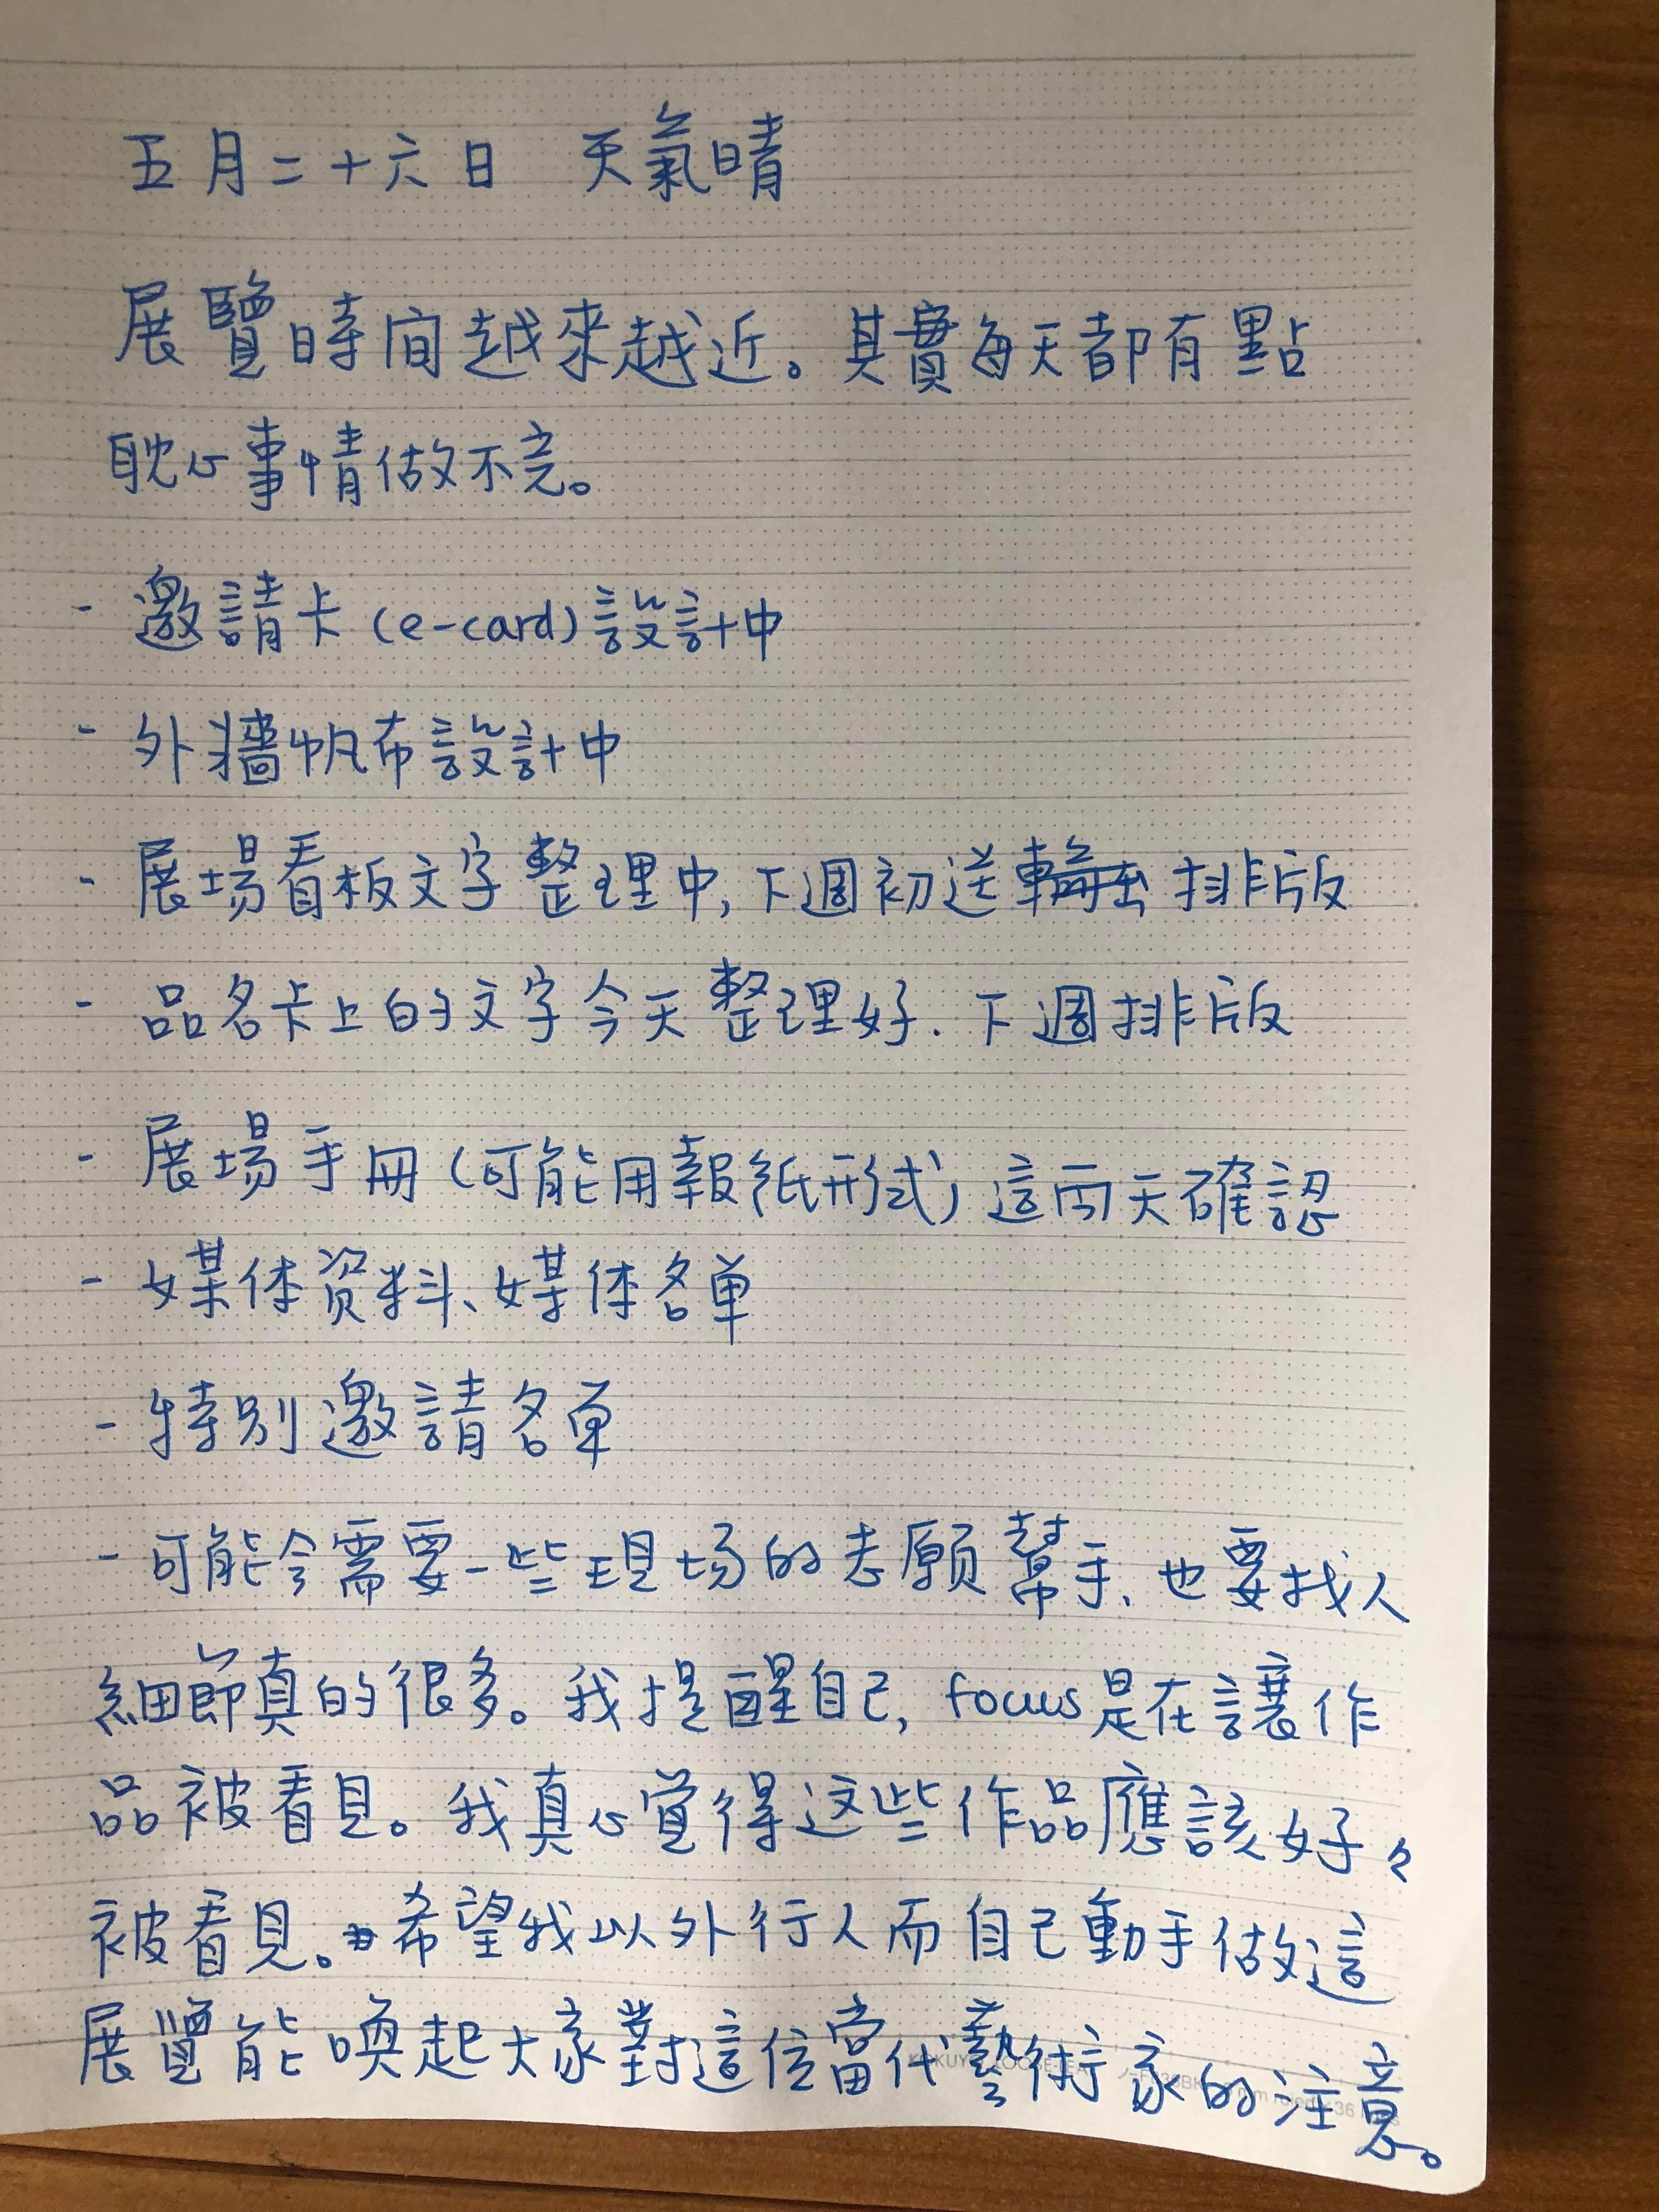 五月二十六日 天氣晴
展覽時间越來越近。其實每天都有點
耽心事情做不完。
- 邀請卡(e-card)設計中
- 外牆帆布設計中
- 展場看板文字整理中,下週初送輸出排版
- 品名卡上的文字今天整理好. 下週排版
- 展場手冊(可能用報紙形式)這兩天確認
- 媒体資料、媒体名單
- 特別邀請名單
- 可能会需要一些現场的志願幫手、也要找人
細節真的很多。我提醒自己, focus是在讓作
品被看見。我真心覚得这些作品應該好々
被看見。希望我以外行人而自己動手做這
展覽能喚起大家對這位當代藝術家的注意。
KOKUYO LOOSE-LEAF